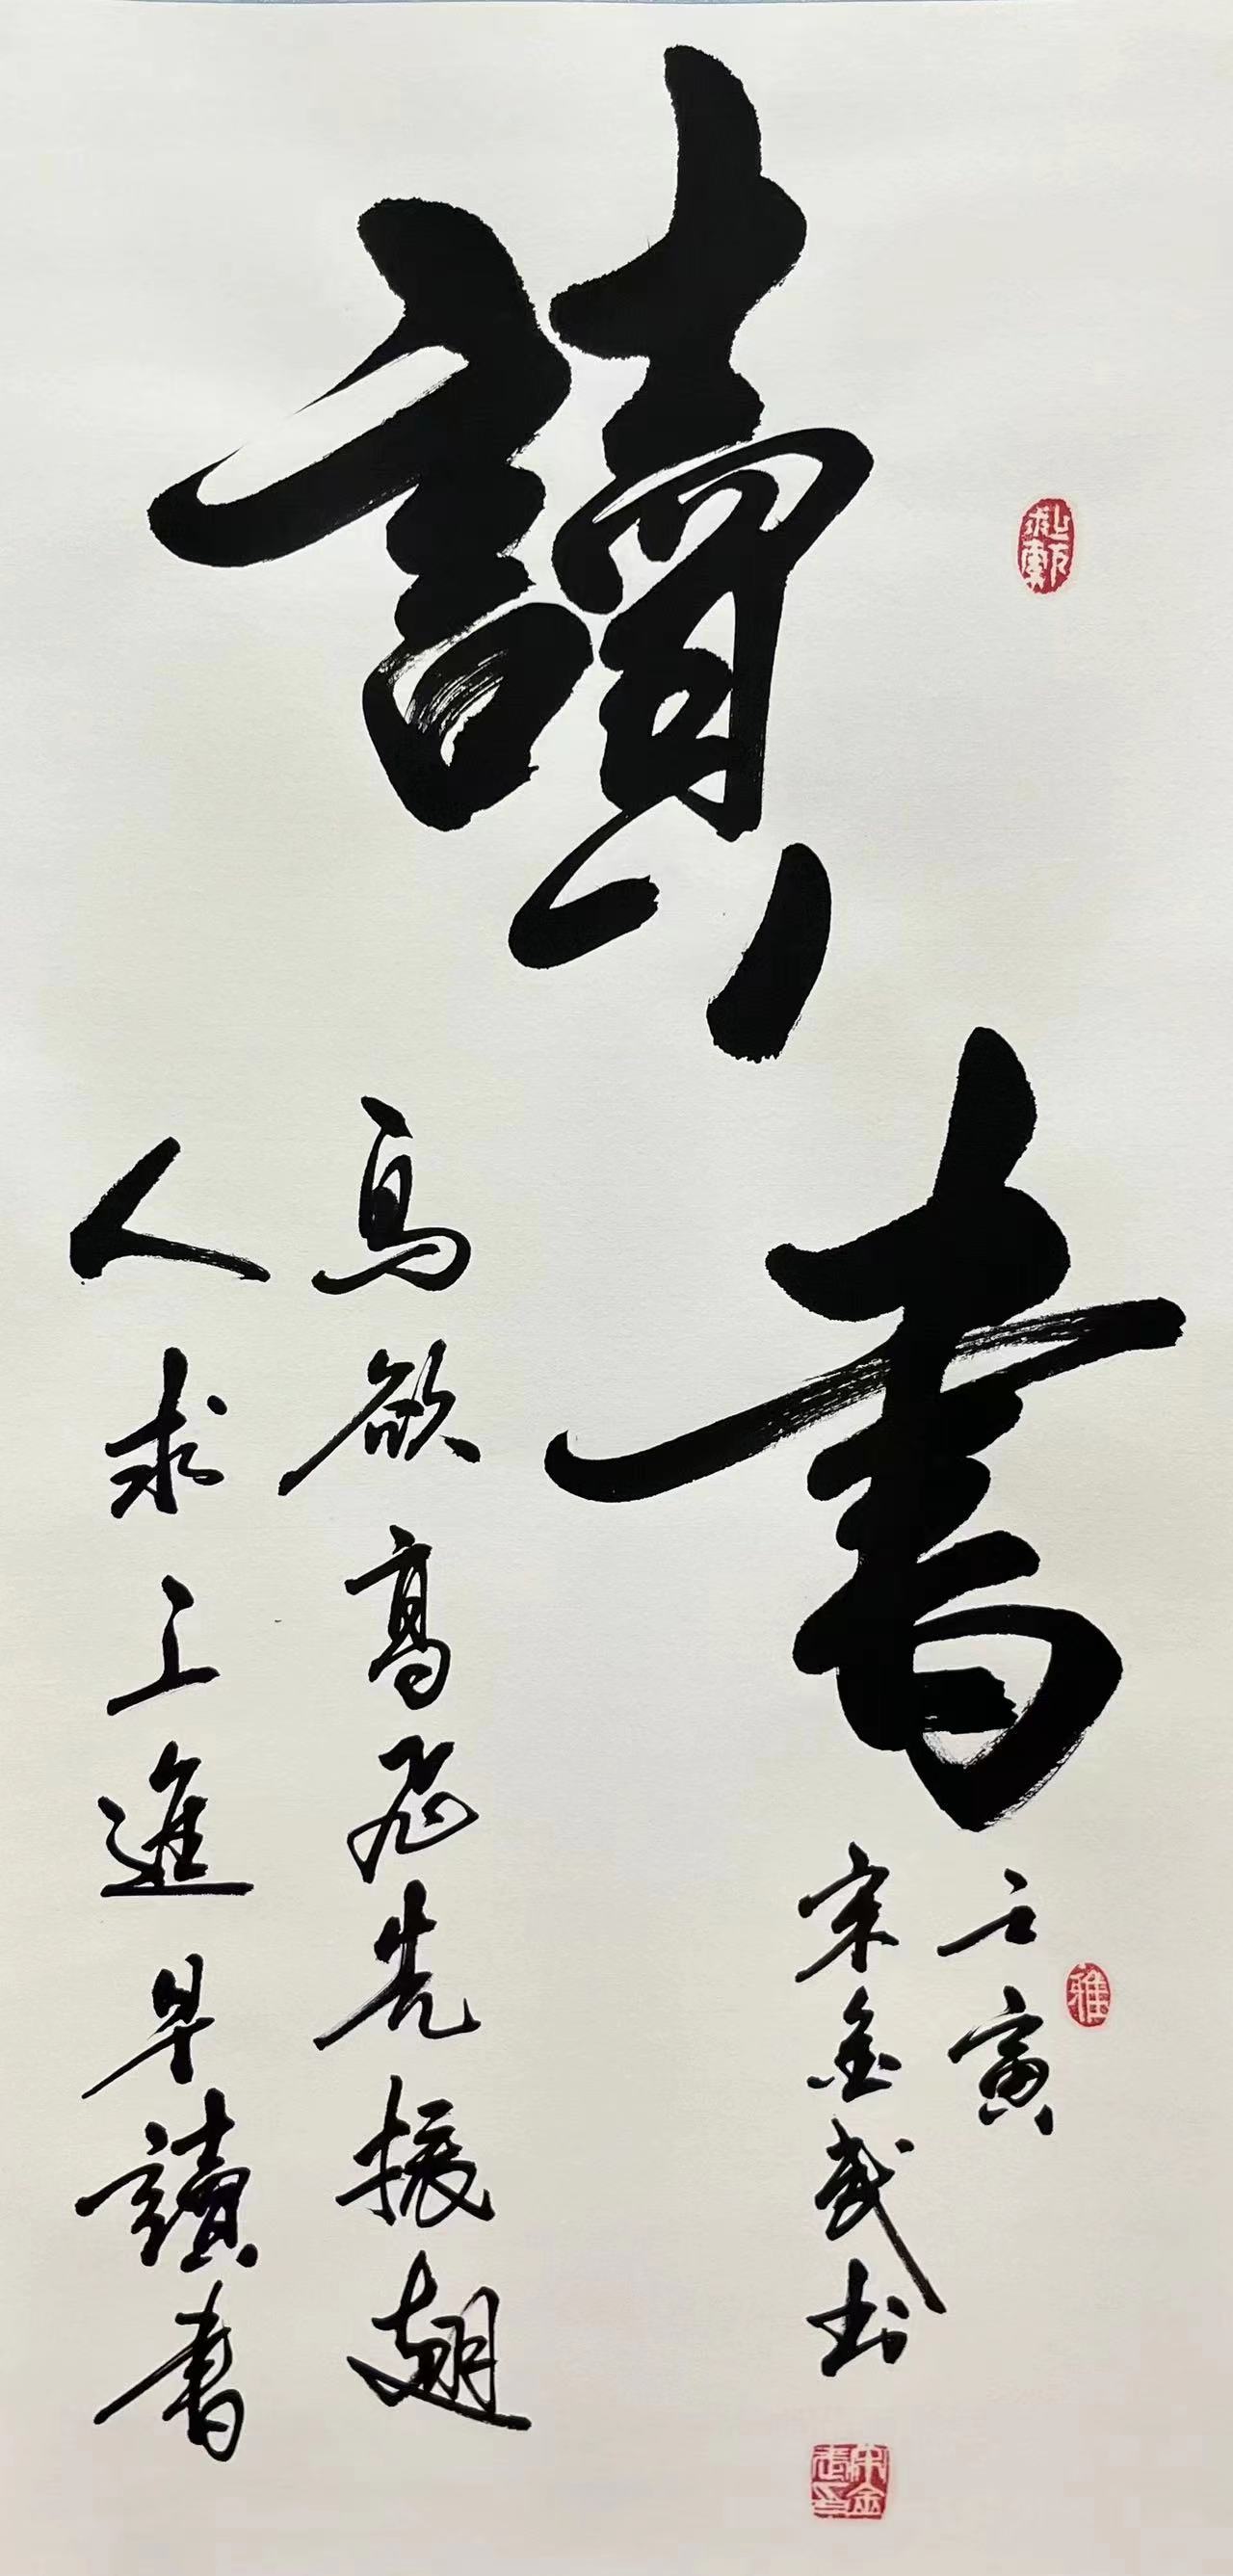 讀書
鳥欲高飛先振翅
人求上進早讀書
壬寅
宋金武书
雅
宋金武印